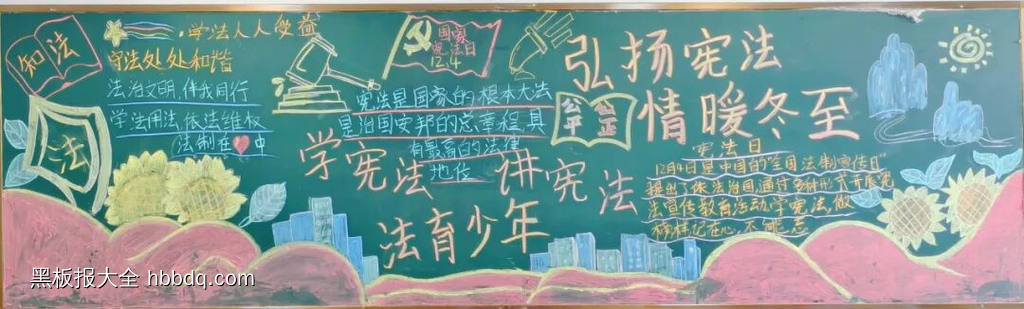 知法
学法人人受益
守法处处和谐
法治文明,伴我同行
学法用法,依法维权
法制在中
法
国家
宪法日
12.4
宪法是国家的根本大法
是治国安邦的总章程,具
有最高的法律
地位
学宪法 讲宪法
法育少年
公平 公正
弘扬宪法
情暖冬至
宪法日
12月4日是中国的"全国法制宣传日"
提出了依法治国,通过多种形式开展宪
法宣传教育活动,学宪法,做
榜样记在心不能忘
黑板报大全 hbbdq.com